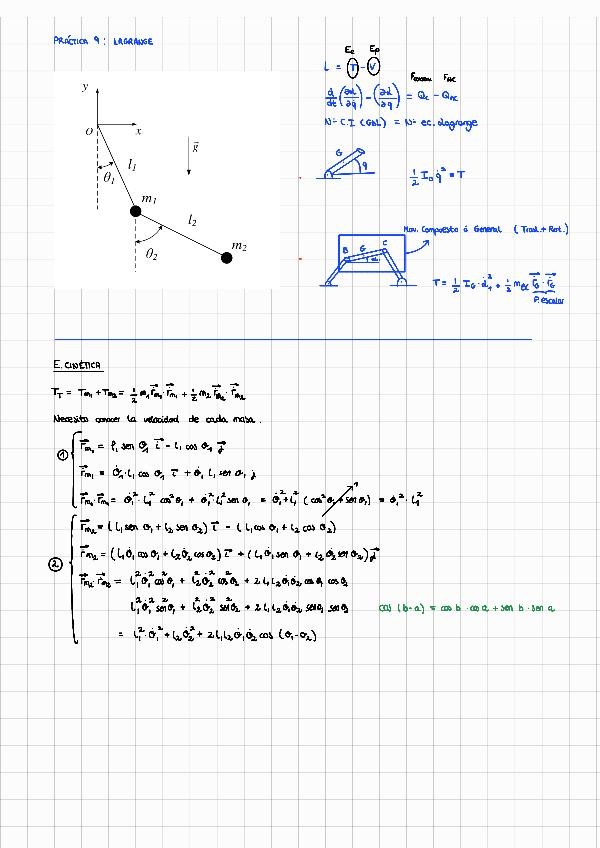 PRÁCTICA 9: LAGRANGE
Ec Ep
L = T - V
d/dt (∂L/∂q̇) - (∂L/∂q) = Qc - Qnc
Nº C.I (GdL) = Nº ec. Lagrange
y
O x
g⃗
l₁
θ₁
m₁
l₂
θ₂
m₂
G
q
1/2 I₀ q̇² = T
Mov. Compuesto ó General (Trasl. + Rot.)
B G C
T = 1/2 I_G · α̇₁² + 1/2 m_BC ṙ_G · ṙ_G
P. escalar
E. CINÉTICA
T_T = T_m₁ + T_m₂ = 1/2 m₁ ṙ_m₁ · ṙ_m₁ + 1/2 m₂ ṙ_m₂ · ṙ_m₂
Necesito conocer la velocidad de cada masa.
① r⃗_m₁ = l₁ sen θ₁ i⃗ - l₁ cos θ₁ j⃗
ṙ_m₁ = θ̇₁ · l₁ cos θ₁ i⃗ + θ̇₁ l₁ sen θ₁ j
ṙ_m₁ · ṙ_m₁ = θ̇₁² · l₁² cos²θ₁ + θ̇₁² l₁² sen²θ₁ = θ̇₁² + l₁² (cos²θ₁ + sen²θ₁) = θ̇₁² · l₁²
1
② r⃗_m₂ = (l₁ sen θ₁ + l₂ sen θ₂) i⃗ - (l₁ cos θ₁ + l₂ cos θ₂)
ṙ_m₂ = (l₁ θ̇₁ cos θ₁ + l₂ θ̇₂ cos θ₂) i⃗ + (l₁ θ̇₁ sen θ₁ + l₂ θ̇₂ sen θ₂) j⃗
ṙ_m₂ · ṙ_m₂ = l₁² θ̇₁² cos²θ₁ + l₂² θ̇₂² cos²θ₂ + 2 l₁ l₂ θ̇₁ θ̇₂ cos θ₁ cos θ₂
l₁² θ̇₁² sen²θ₁ + l₂² θ̇₂² sen²θ₂ + 2 l₁ l₂ θ̇₁ θ̇₂ sen θ₁ sen θ₂
cos (b-a) = cos b · cos a + sen b · sen a
= l₁² · θ̇₁² + l₂ θ̇₂² + 2 l₁ l₂ θ̇₁ θ̇₂ cos (θ₁ - θ₂)